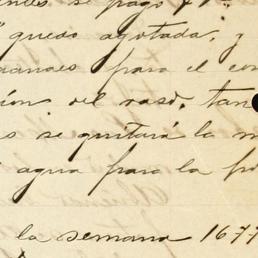 se pagó
" quedo agotada, y
para el con
ción del vaso, tan
s se quitará la m
agua para la
la semana 1677